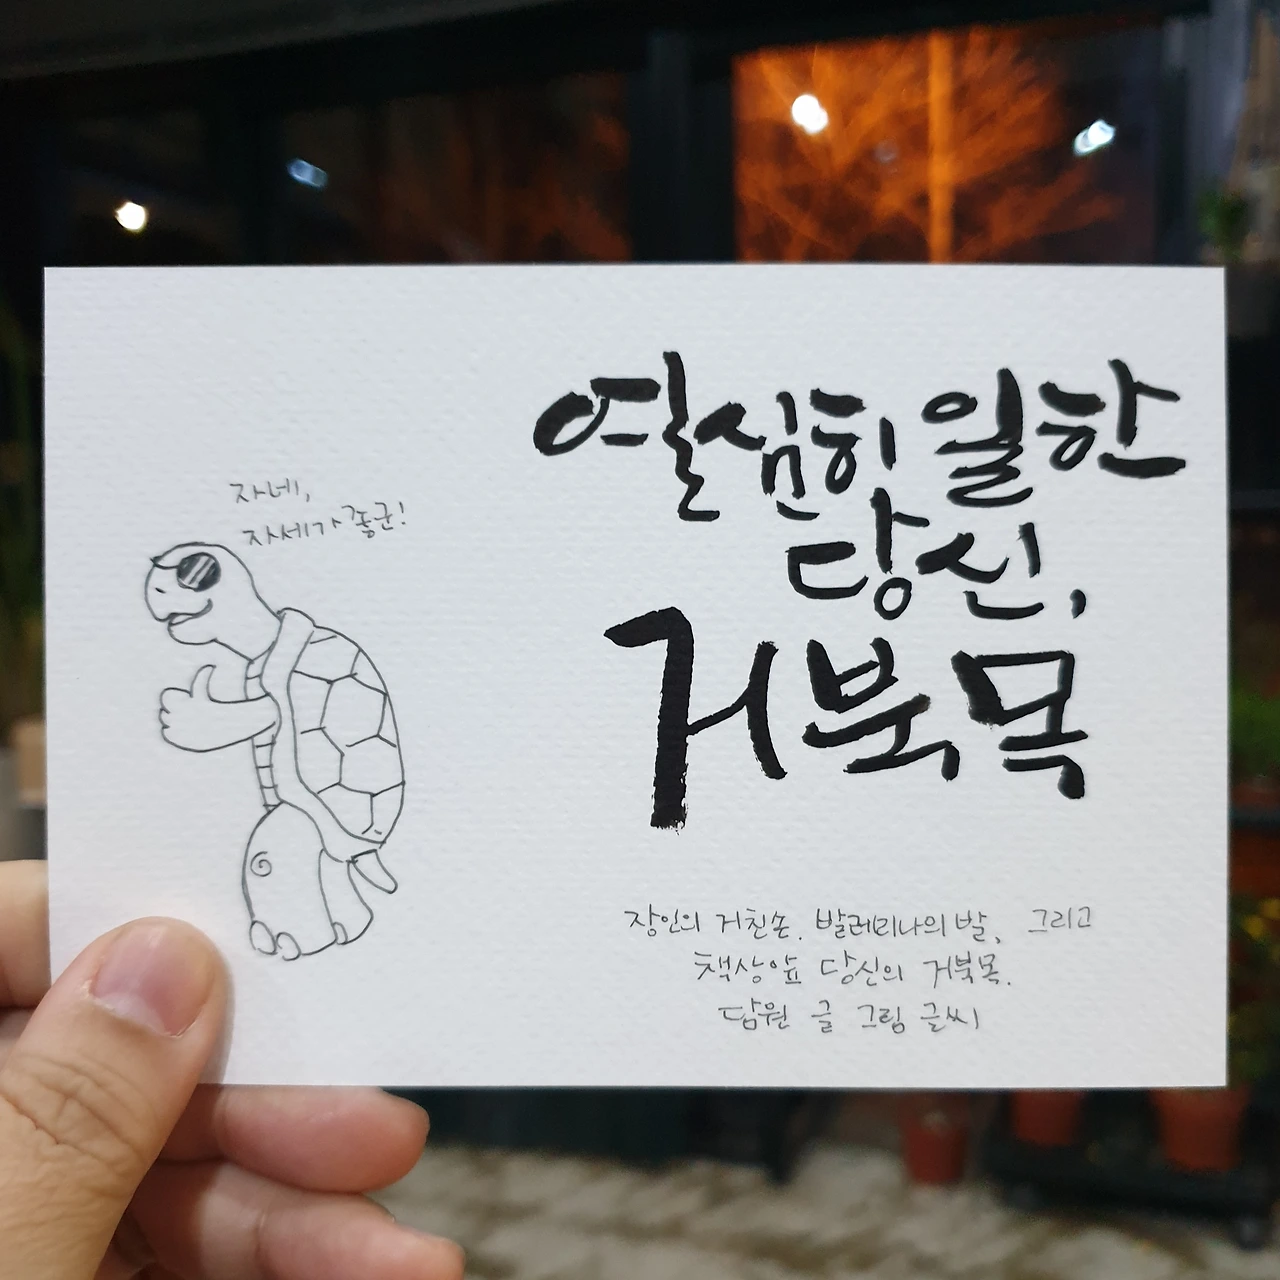 열심히 일한
당신,
거북목
자네,
자세가 좋군!
장인의 거친손. 발레리나의 발, 그리고
책상앞 당신의 거북목.
담원 글 그림 글씨